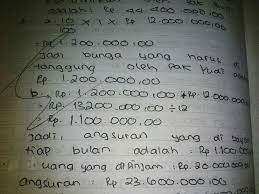 adalah : Rp. 44.400.000,00
10/100 x 1 x Rp 12.000.000,00
= Rp. 1.200.000,00
Jadi bunga yang harus di
tanggung oleh pak Yudi adalah
Rp. 1.200.000,00
b. = Rp. 1.200.000,00 + Rp 12.000.000
= Rp. 13.200.000,00 ÷ 12
= Rp. 1.100.000,00
Jadi, angsuran yang di bayar
tiap bulan adalah : Rp. 1.100.000
uang yang dipinjam : Rp. 20.000.000
angsuran : Rp 23.600.000,00